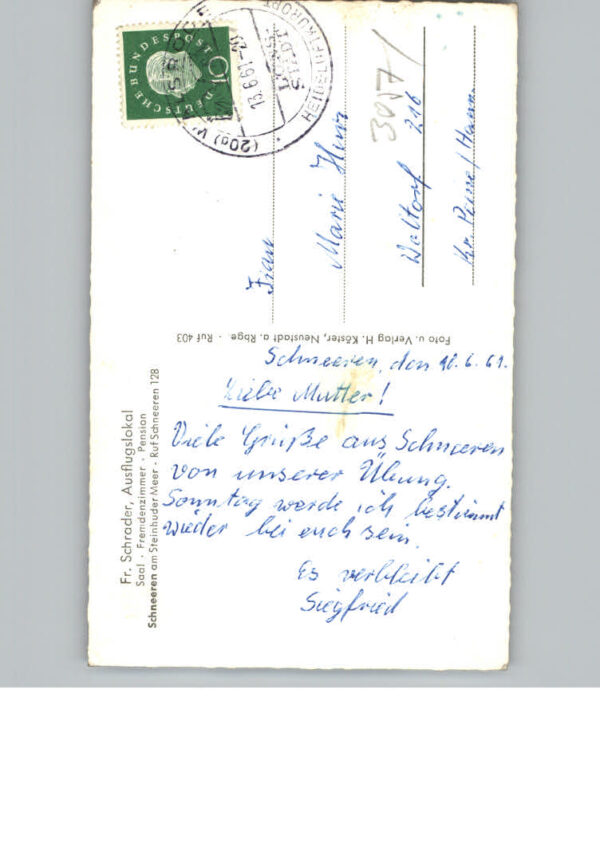 DEUTSCHE BUNDESPOST
10
13.6.61-20
(20a)
HEIDELUFTKURORT
3057/
Frau
Marie
Woltorf 216
Kr. Peine/Hann.
Foto u. Verlag H. Köster, Neustadt a. Rbge. · Ruf 403
Fr. Schrader, Ausflugslokal
Saal · Fremdenzimmer · Pension
Schneeren am Steinhuder Meer · Ruf Schneeren 128
Schneeren, den 10.6.61.
Liebe Mutter!
Viele Grüße aus Schneeren
von unserer Übung.
Sonntag werde ich bestimmt
wieder bei euch sein.
Es verbleibt
Siegfried